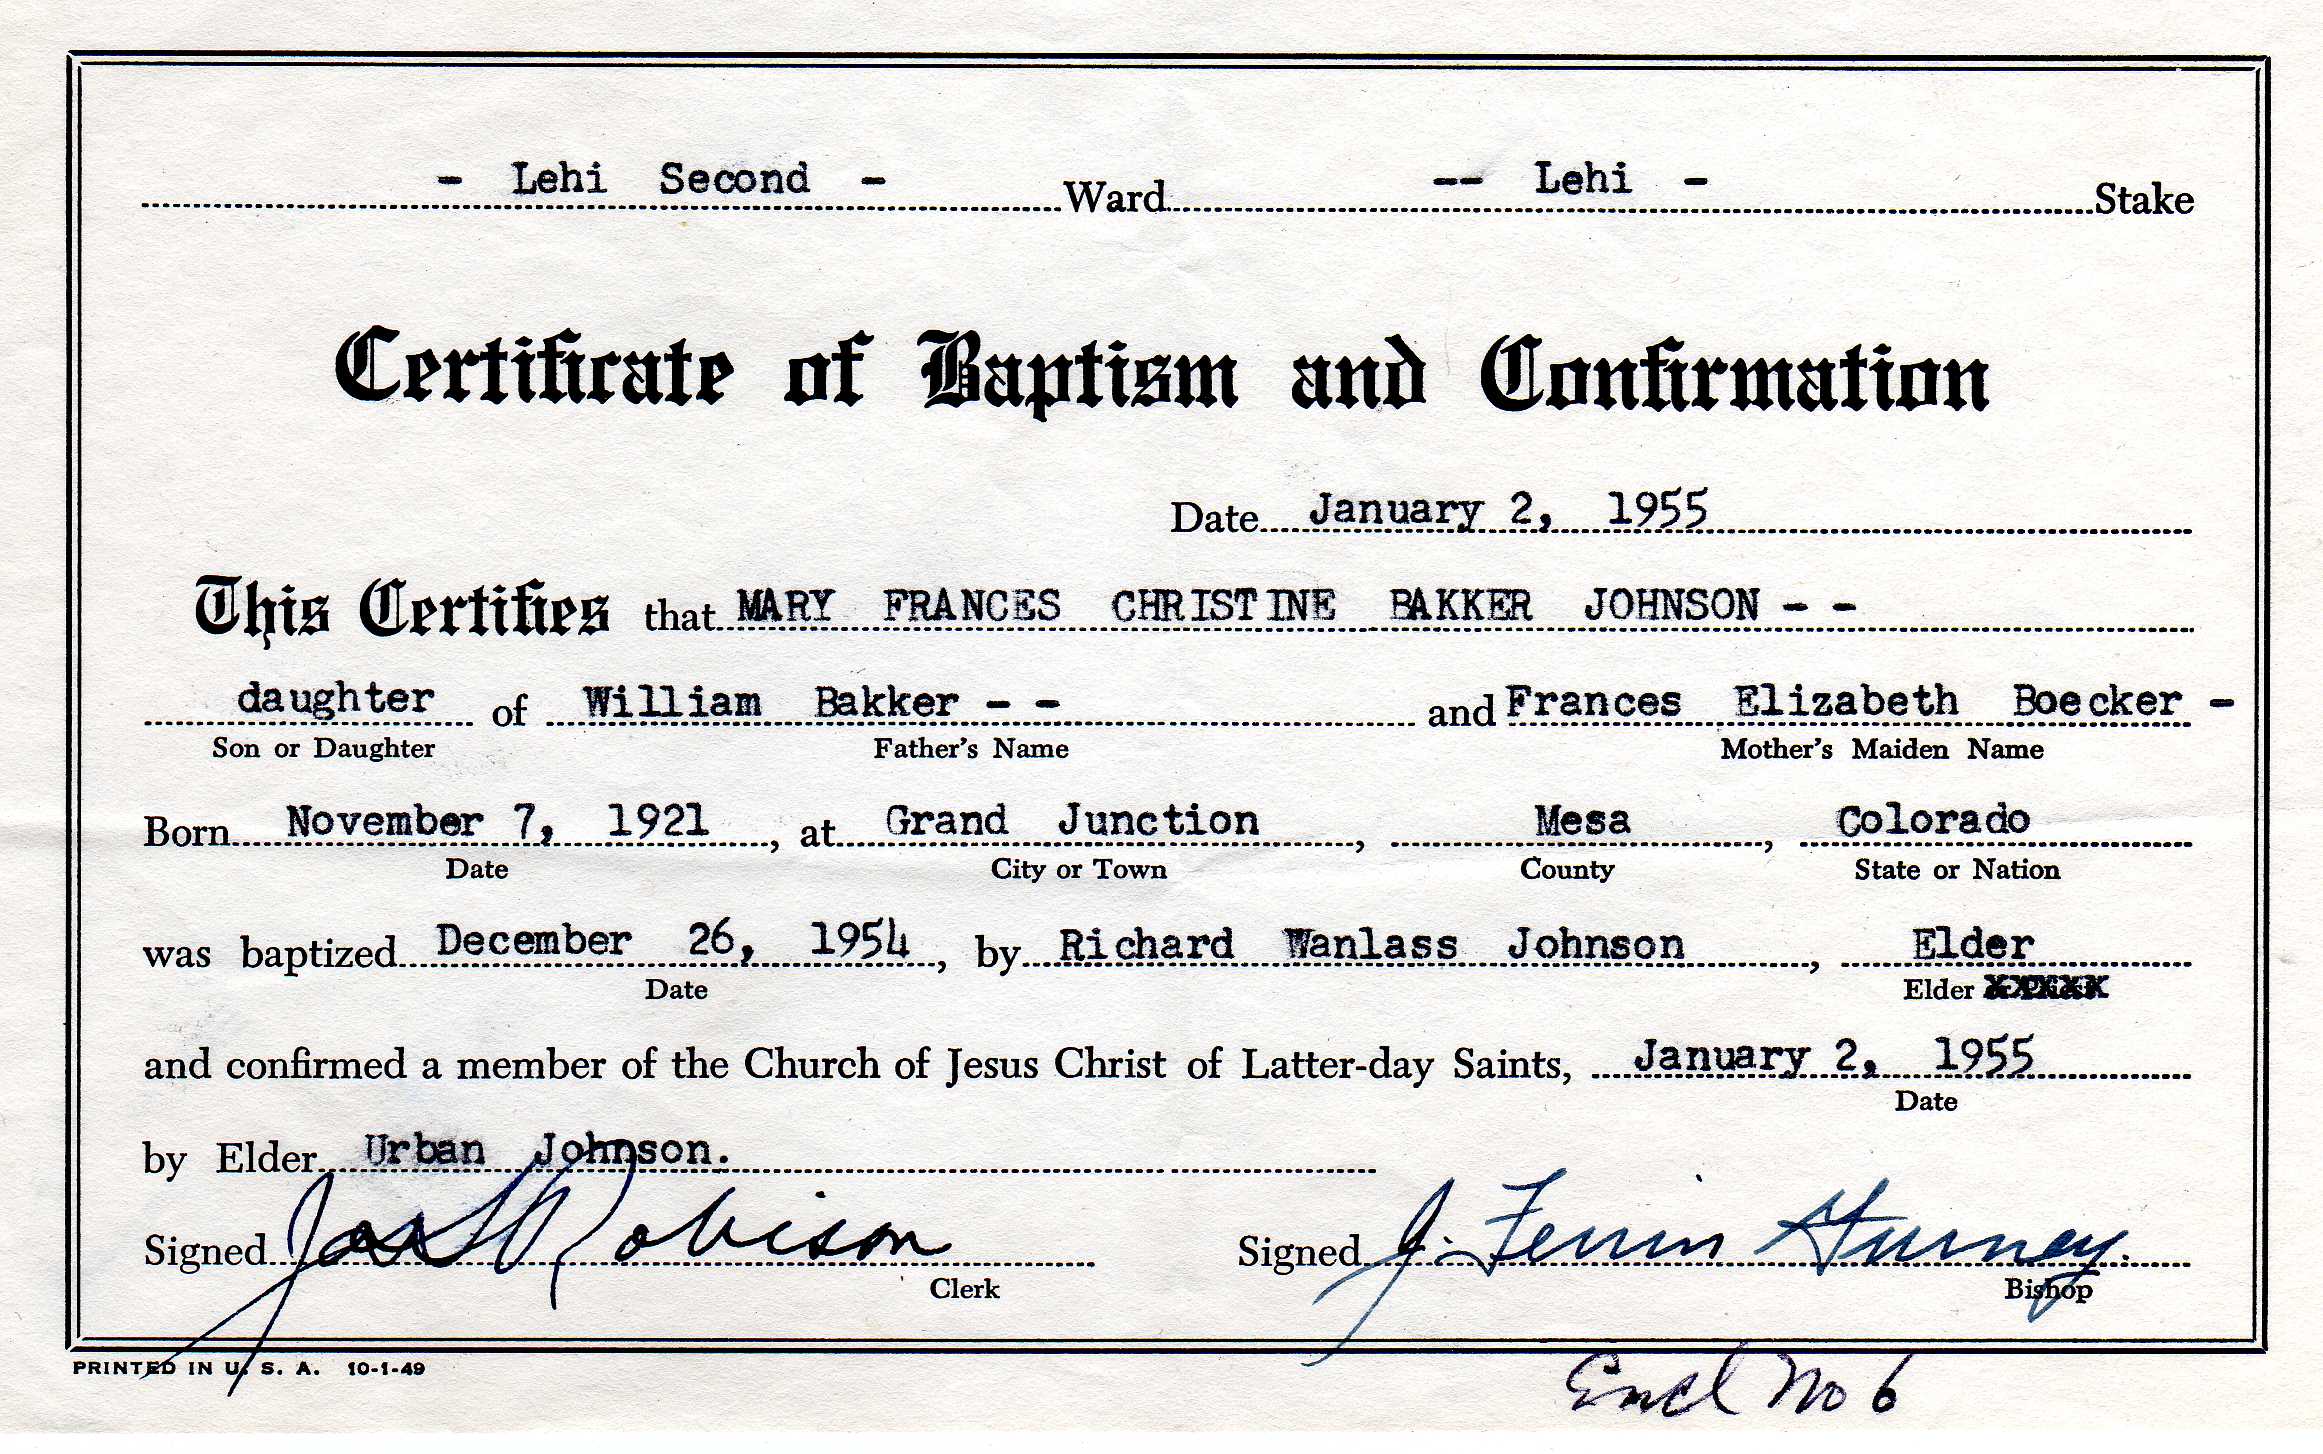 - Lehi Second - Ward -- Lehi - Stake
Certificate of Baptism and Confirmation
Date January 2, 1955
This Certifies that MARY FRANCES CHRISTINE BAKKER JOHNSON - -
daughter of William Bakker - - and Frances Elizabeth Boecker -
Son or Daughter Father's Name Mother's Maiden Name
Born November 7, 1921, at Grand Junction, Mesa, Colorado
Date City or Town County State or Nation
was baptized December 26, 1954, by Richard Wanlass Johnson, Elder
Date Elder
and confirmed a member of the Church of Jesus Christ of Latter-day Saints, January 2, 1955
Date
by Elder Urban Johnson.
Signed Robison Signed J. Ferrin Gurney.
Clerk Bishop
PRINTED IN U. S. A. 10-1-49
Encl No 6